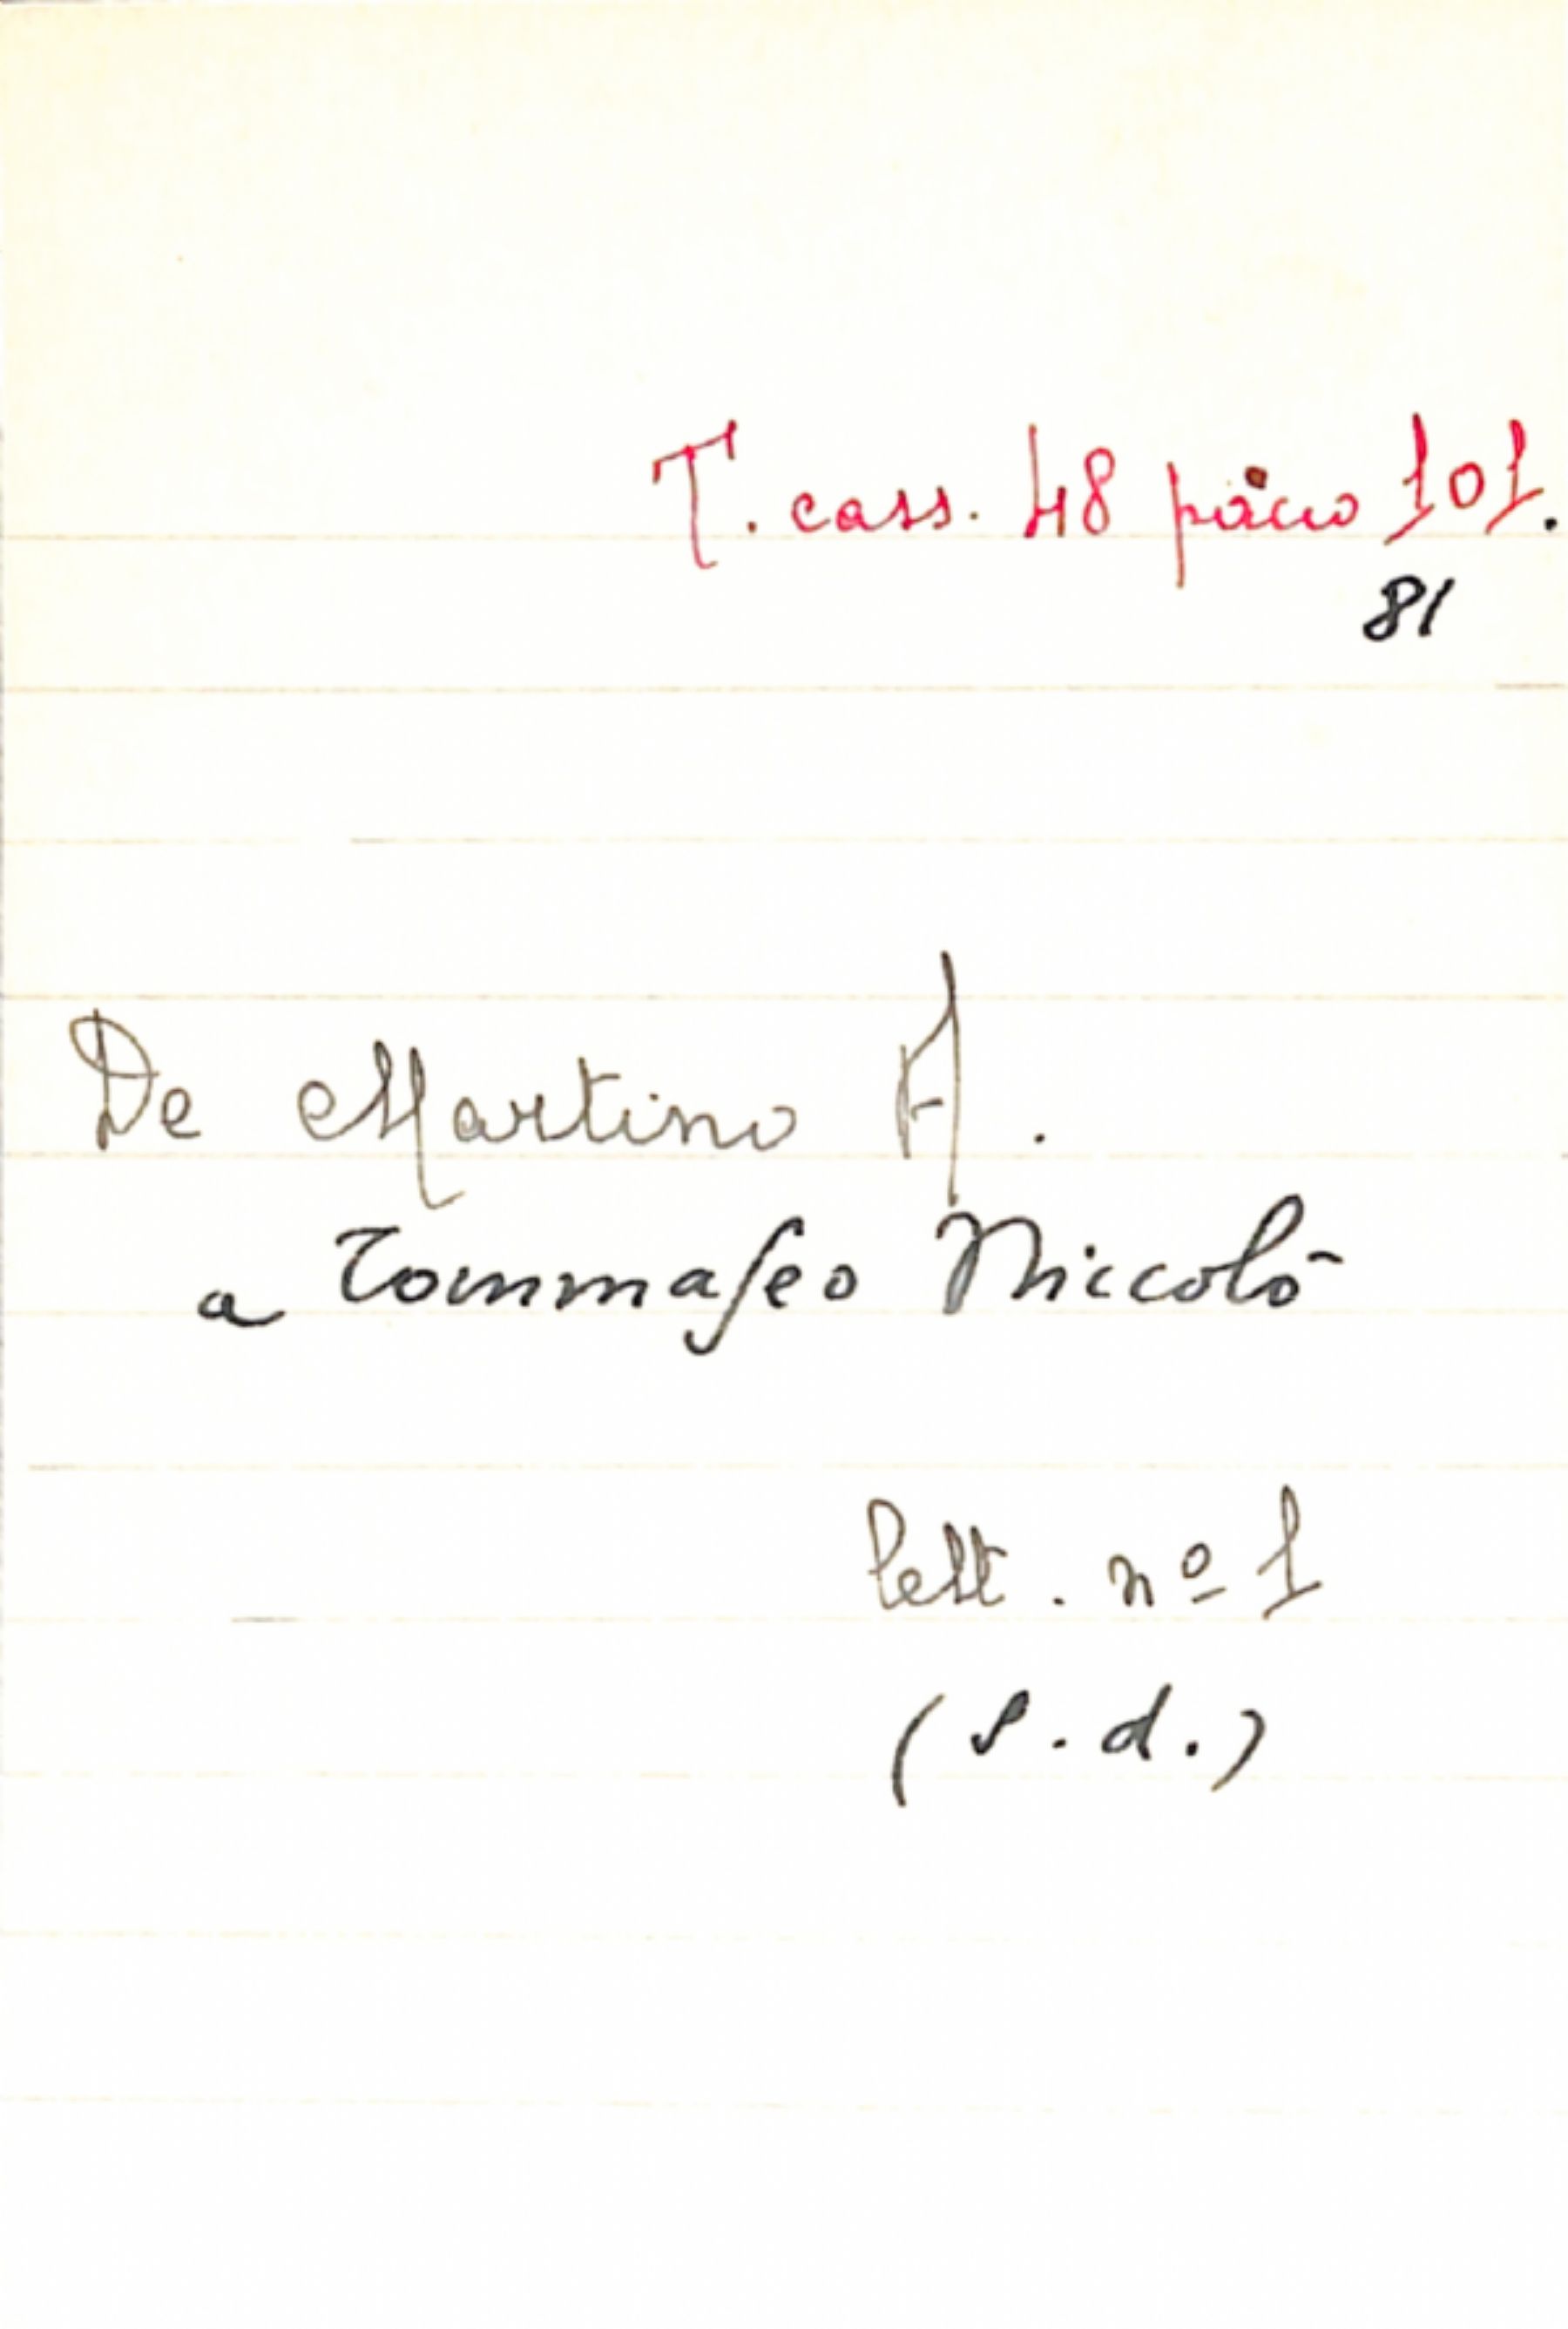 T. cass. 48 pacco 101.
81
De Martino A.
a Tommaseo Niccolò
lett. nº 1
(s.d.)